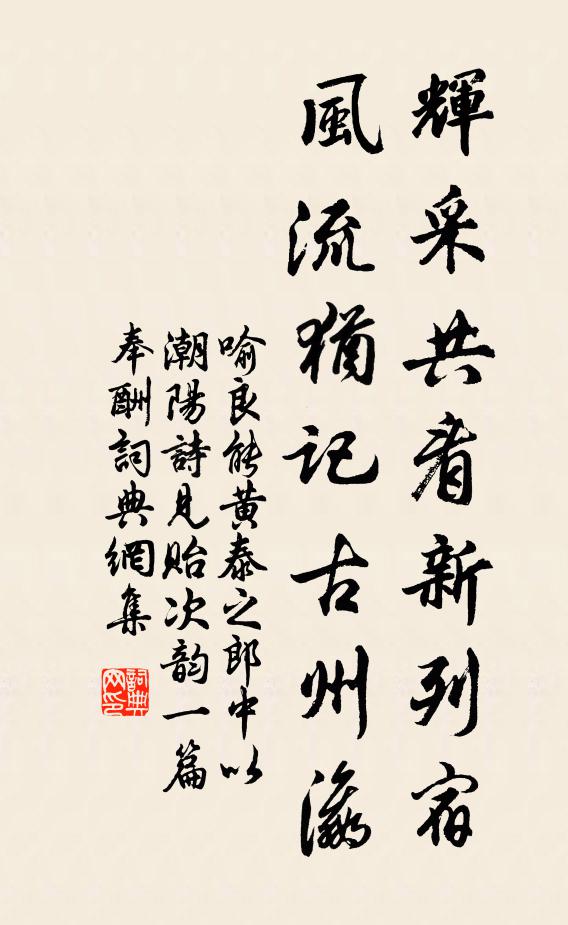 輝采共看新列宿
風流猶記古州瀛
喻良能黄泰之郎中以
潮陽詩見貽次韵一篇
奉酬詞典網集
詞典
网印